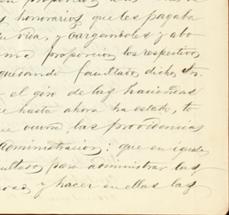 honorarios que les pagaba
viva, y cargandoles y abo
proporcion los respectivos
facultado, dicho Sr.
el giro de las haciendas
hasta ahora ha estado, te
ocurra, las providencias
administracion: que en igual
para administrar las
y hacer en ellas las